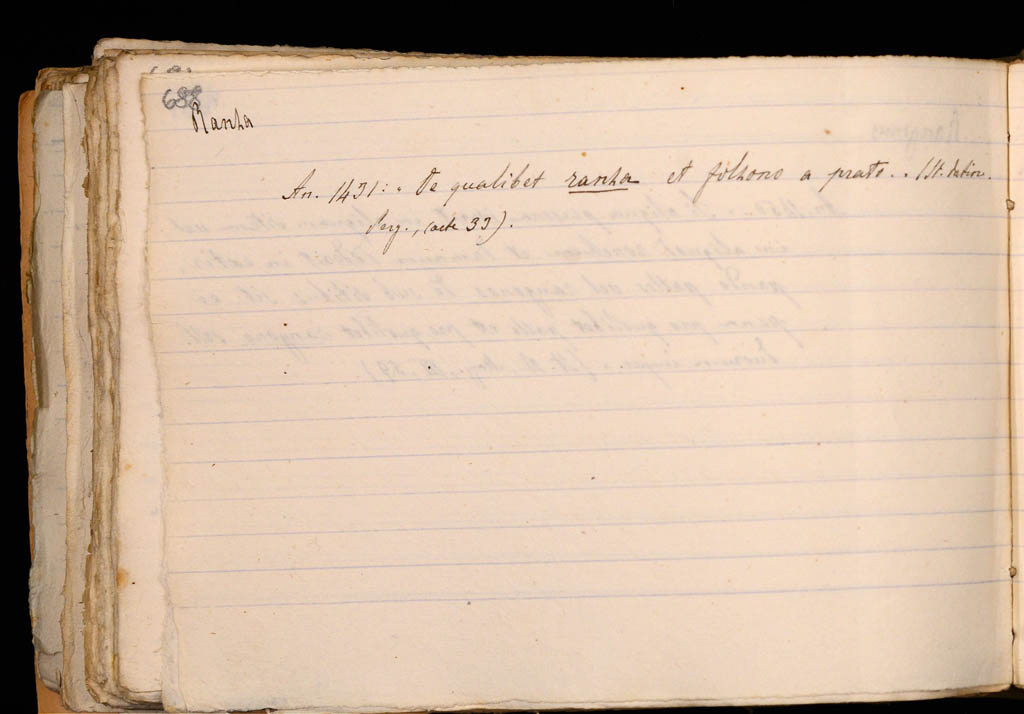 688
Ranha
An. 1431: « De qualibet ranha et folhono a prato. » (St. latin.
Perg., (acte 33).